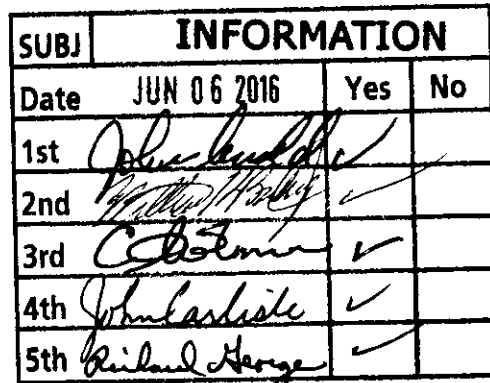 SUBJ INFORMATION
Date JUN 06 2016 Yes No
1st John ✓
2nd ✓
3rd ✓
4th John Carlisle ✓
5th Richard George ✓